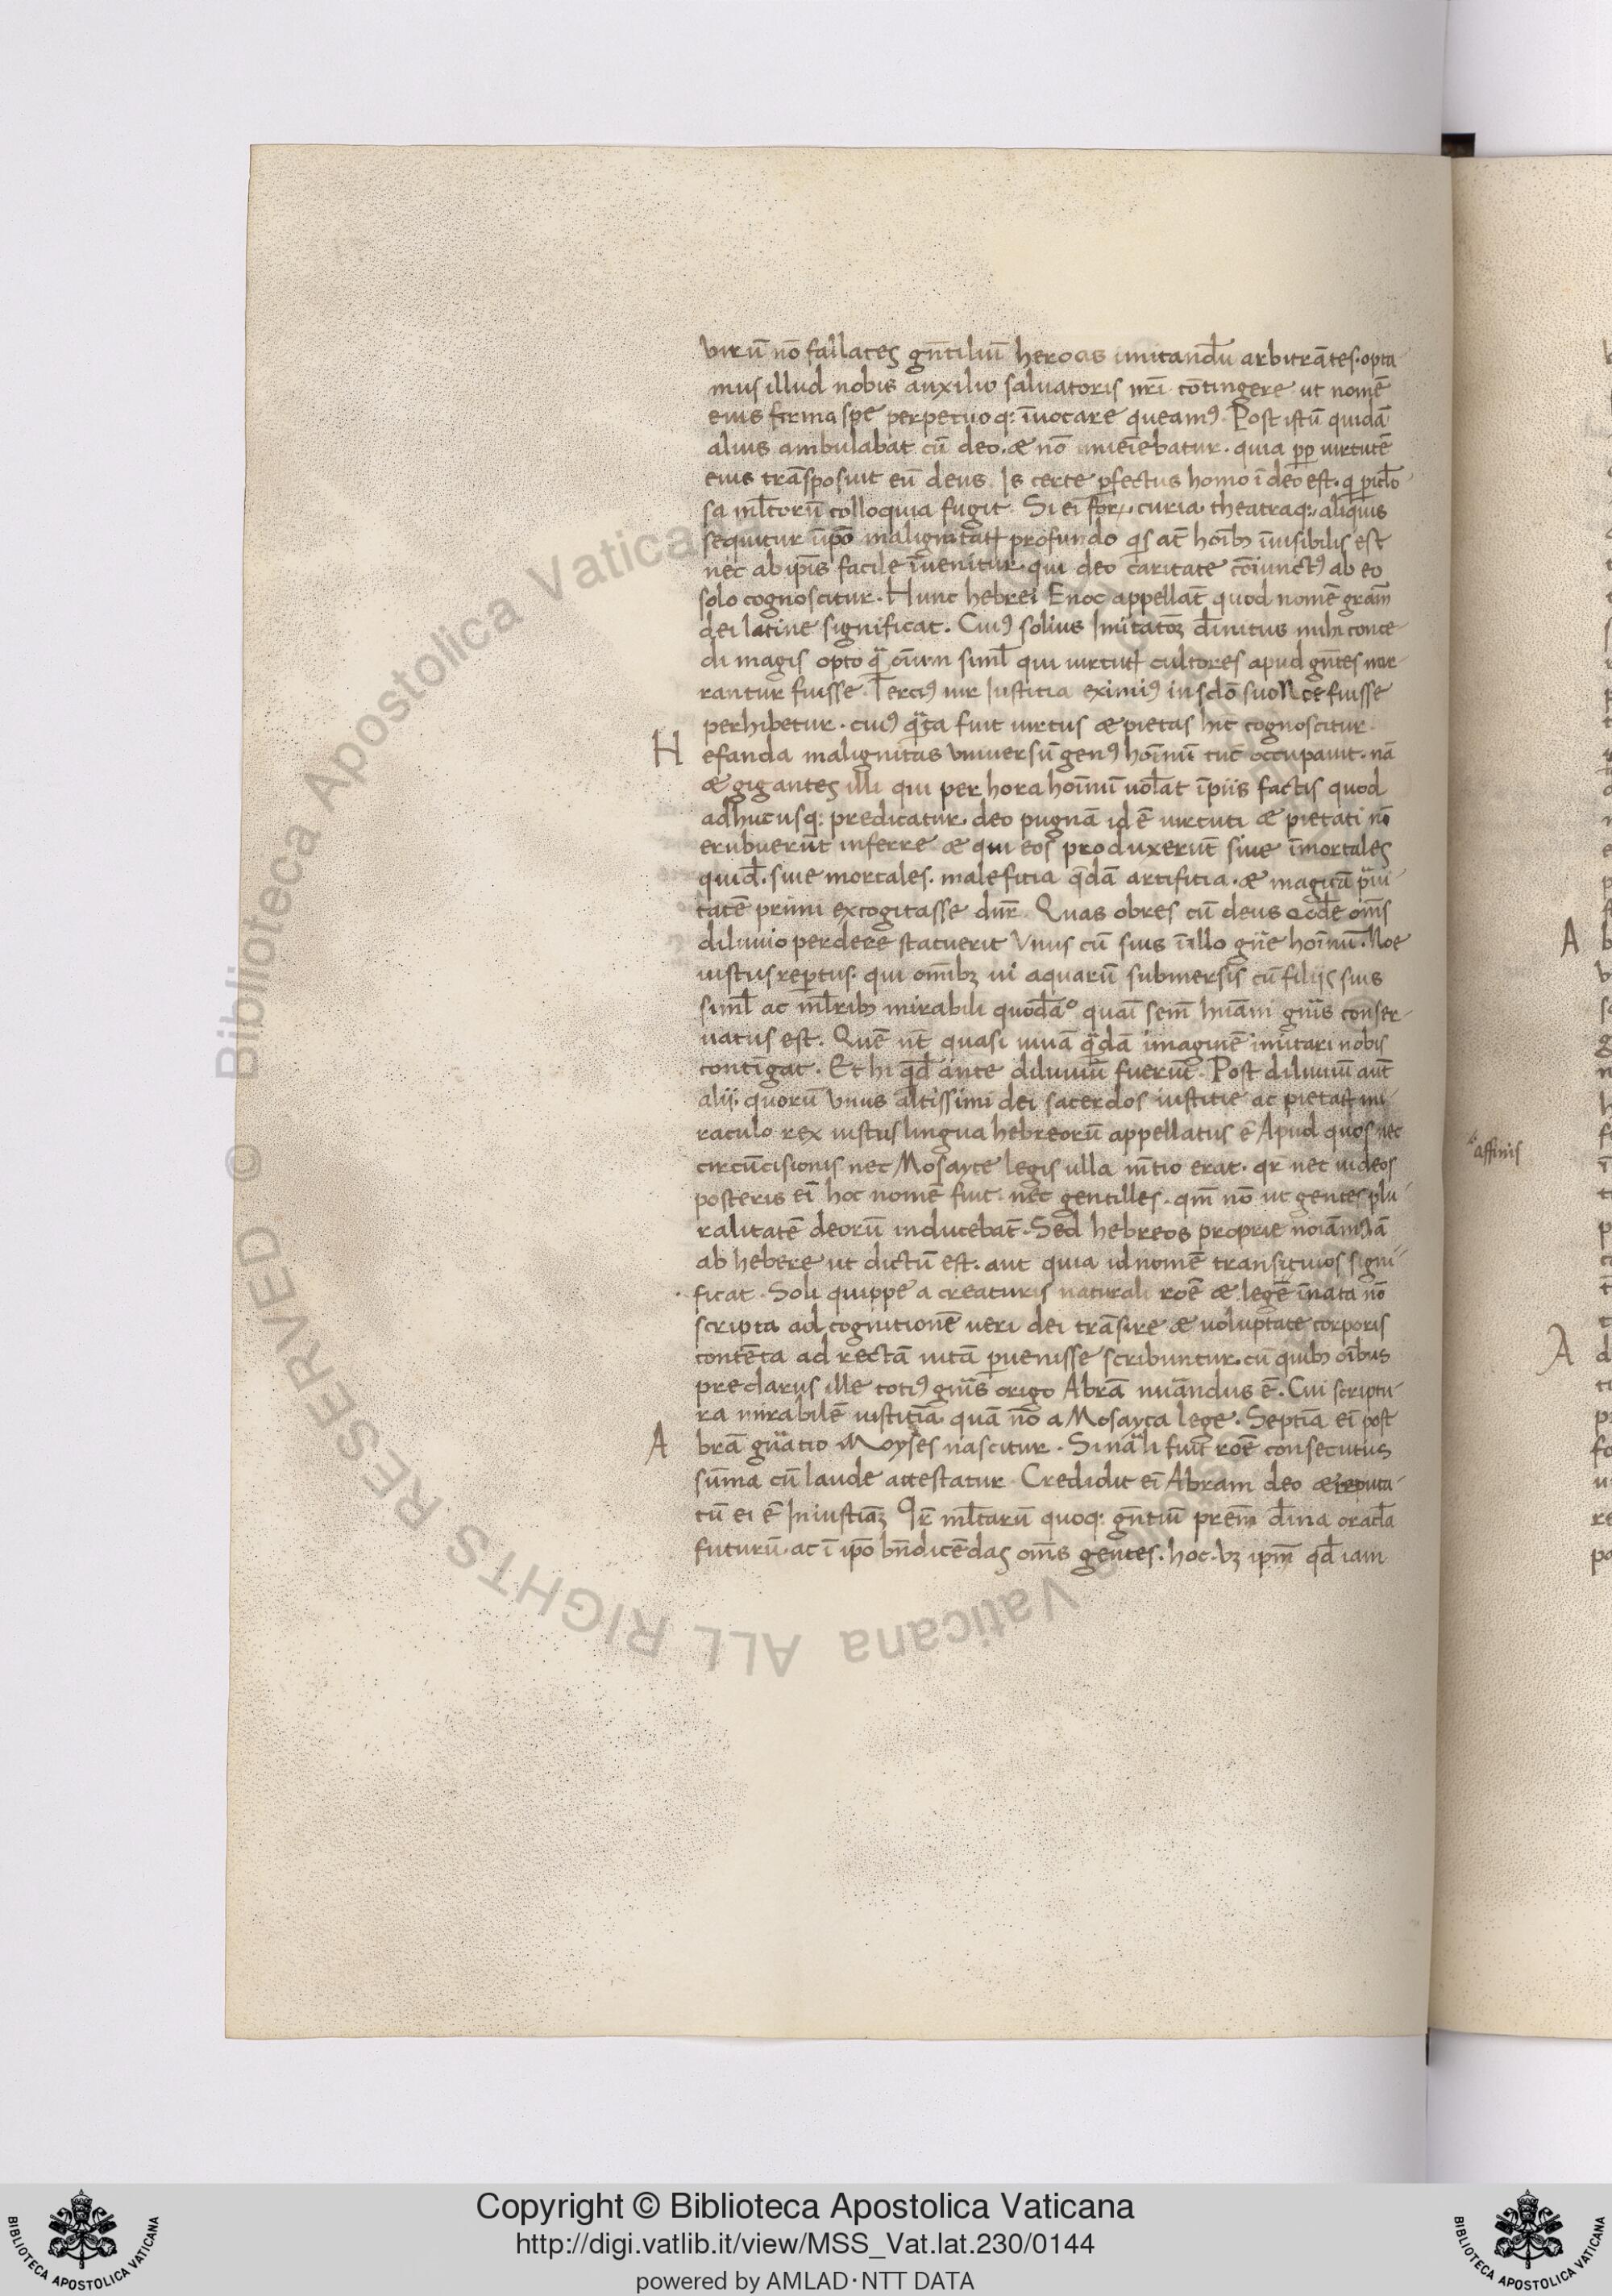 virū nō fallaces gn̄tiliū heroas imitandū arbitrātes. opta
mus illud nobis auxilio saluatoris nr̄i cōtingere ut nomē
eius firma spe perpetuo q: īuocare queamꝰ. Post istū quidā
alius ambulabat cū deo. æ nō inueīebatur. quia ꝓp uirtutē
eius trāsposuit eū deus. Is certe ꝑfectus homo ī deo est. q ꝑicl̄o
sa ml̄torū colloquia fugit. Si ei curia. theatraq: aliquis
sequitur profundo qs at̄ hoīb; īuisibilis est
nec ab ip̄is facile īuenitur. qui deo caritate cōiunctꝰ ab eo
solo cognoscitur. Hunc hebrei Enoc appellāt quod nomē grām
dei latine significat. Cuiꝰ solius Imitatoꝝ diuīitus mihi conce
di magis opto qᷓ oīum siml̄ qui uirtutꝭ cultores apud gn̄tes nar
rantur fuisse. Terciꝰ uir Iusticia eximiꝰ in sclō suo Noe fuisse
perhibetur. cuiꝰ qᷓta fuit uirtus æ pietas hic cognoscitur.
H efanda malignitas vniuersū genꝰ hoīnū tūc occupauit. nā
æ gigantes illi qui per hora hoīnū uol̄at īpiis factis quod
adhucusq: predicatur. deo pugnā id ē uirtuti æ pietati nō
erubuerūt inferre æ qui eos produxerūt siue īmortales
quid̄. siue mortales. maleficia q̄dā artificia. æ magicā pᷓui
tatē primi excogitasse dnr̄. Quas obres cū deus om̄s
diluuio perdere statuerit vnus cū suis ī illo gn̄e hoīnū. Noe
iustus reꝑtus. qui om̄ib; ui aquarū submersis cū filiis suis
siml̄ ac ml̄rib; mirabili quodāo quāi sem̄ hūani gn̄is conser
uatus est. Quē ut̄ quasi uiuā qᷓdā imaginē imitari nobis
contīgat. Et hi qd̄ ante diluuiū fuerūt. Post diluuiū aut̄
alii. quorū vnus altissimi dei sacerdos iusticie ac pietatꝭ mi
raculo rex iustus lingua hebreorū appellatus ē. Apud quos nec
circūcisionis nec Mosayce legis ulla mētio erat. qr̄ nec iudeos
posteris eī hoc nomē fuit. nec gentilles. qm̄ nō ut gentes plu
ralitatē deorū inducebāt. Sed hebreos proprie noīamꝰ
ab hebere ut dictū est. aut quia id nomē transitiuos signi
ficat. Soli quippe a creaturis naturali rōe æ lege īnata nō
scripta ad cognitionē ueri dei trāsire æ uoluptate corporis
contēta ad rectā uitā ꝑuenisse scribuntur. cū quib; oībus
preclarus ille totiꝰ gn̄is origo Abrā nuāndus ē. Cui scriptu
ra mirabilē iusticiā. quā nō a Mosayca lege. Septīa eī post
A brā gn̄atio Moyses nascitur. S; nāli fuit rōe consecutus
sum̄a cū laude attestatur. Credidit eī Abram deo æ reputa
tū ei ē In iustiaꝫ. Qr̄ ml̄tarū quoq: gn̄tiū prem̄ diuīa oracl̄a
futurū. ac ī ip̄o bn̄dicēdas om̄s gentes. hoc. vꝫ ipm̄ qd̄ iam
affinis
A
A
Copyright © Biblioteca Apostolica Vaticana
http://digi.vatlib.it/view/MSS_Vat.lat.230/0144
powered by AMLAD·NTT DATA
BIBLIOTECA APOSTOLICA VATICANA
BIBLIOTECA APOSTOLICA VATICANA
© Biblioteca Apostolica Vaticana ALL RIGHTS RESERVED